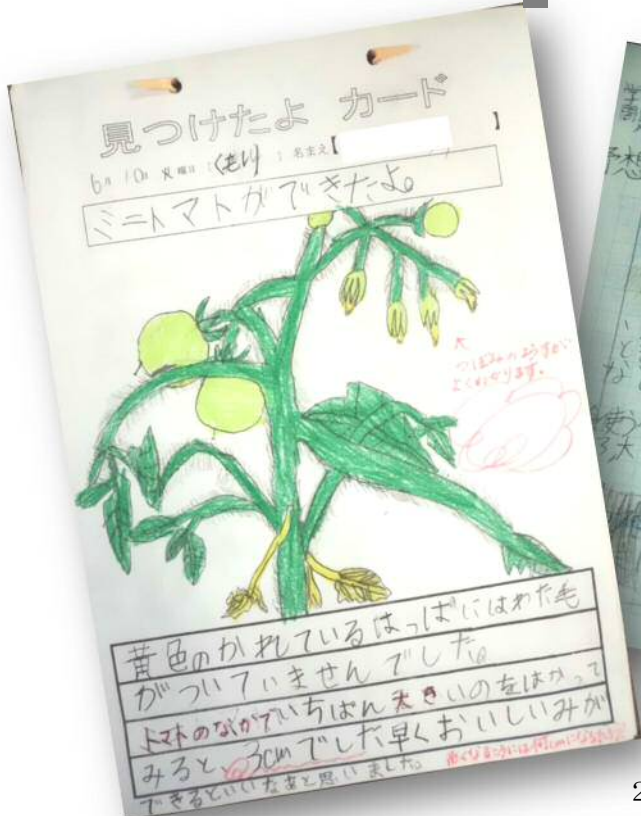 見つけたよ カード
6月 10日 火曜日 くもり 名まえ【 】
ミニトマトができたよ。
つぼみのようすが
よくわかります。
黄色のかれているはっぱにはわた毛
がついていませんでした。
トマトのなかでいちばん大きいのをはかって
みると、3cmでした早くおいしいみが
できるといいなあと思いました。
予想
2